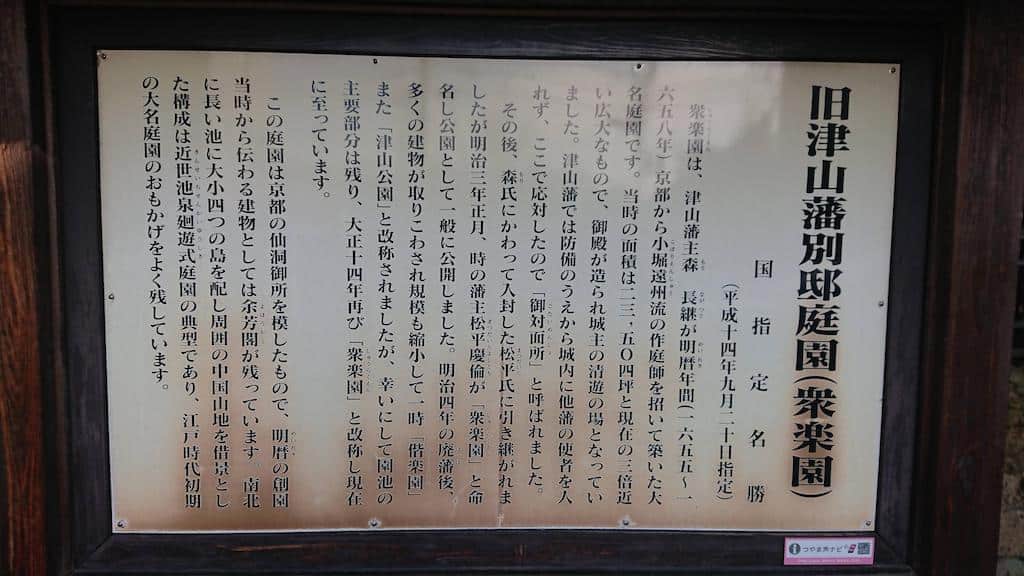 旧津山藩別邸庭園(衆楽園)
国指定名勝
(平成十四年九月二十日指定)
衆楽園は、津山藩主森 長継が明暦年間(一六五五〜一
六五八年)京都から小堀遠州流の作庭師を招いて築いた大
名庭園です。当時の面積は二三,五〇四坪と現在の三倍近
い広大なもので、御殿が造られ城主の清遊の場となってい
ました。津山藩では防備のうえから城内に他藩の使者を入
れず、ここで応対したので「御対面所」と呼ばれました。
その後、森氏にかわって入封した松平氏に引き継がれま
したが明治三年正月、時の藩主松平慶倫が「衆楽園」と命
名し公園として一般に公開しました。明治四年の廃藩後、
多くの建物が取りこわされ規模も縮小して一時「偕楽園」
また「津山公園」と改称されましたが、幸いにして園池の
主要部分は残り、大正十四年再び「衆楽園」と改称し現在
に至っています。
この庭園は京都の仙洞御所を模したもので、明暦の創園
当時から伝わる建物としては余芳閣が残っています。南北
に長い池に大小四つの島を配し周囲の中国山地を借景とし
た構成は近世池泉廻遊式庭園の典型であり、江戸時代初期
の大名庭園のおもかげをよく残しています。
つやま市ナビ